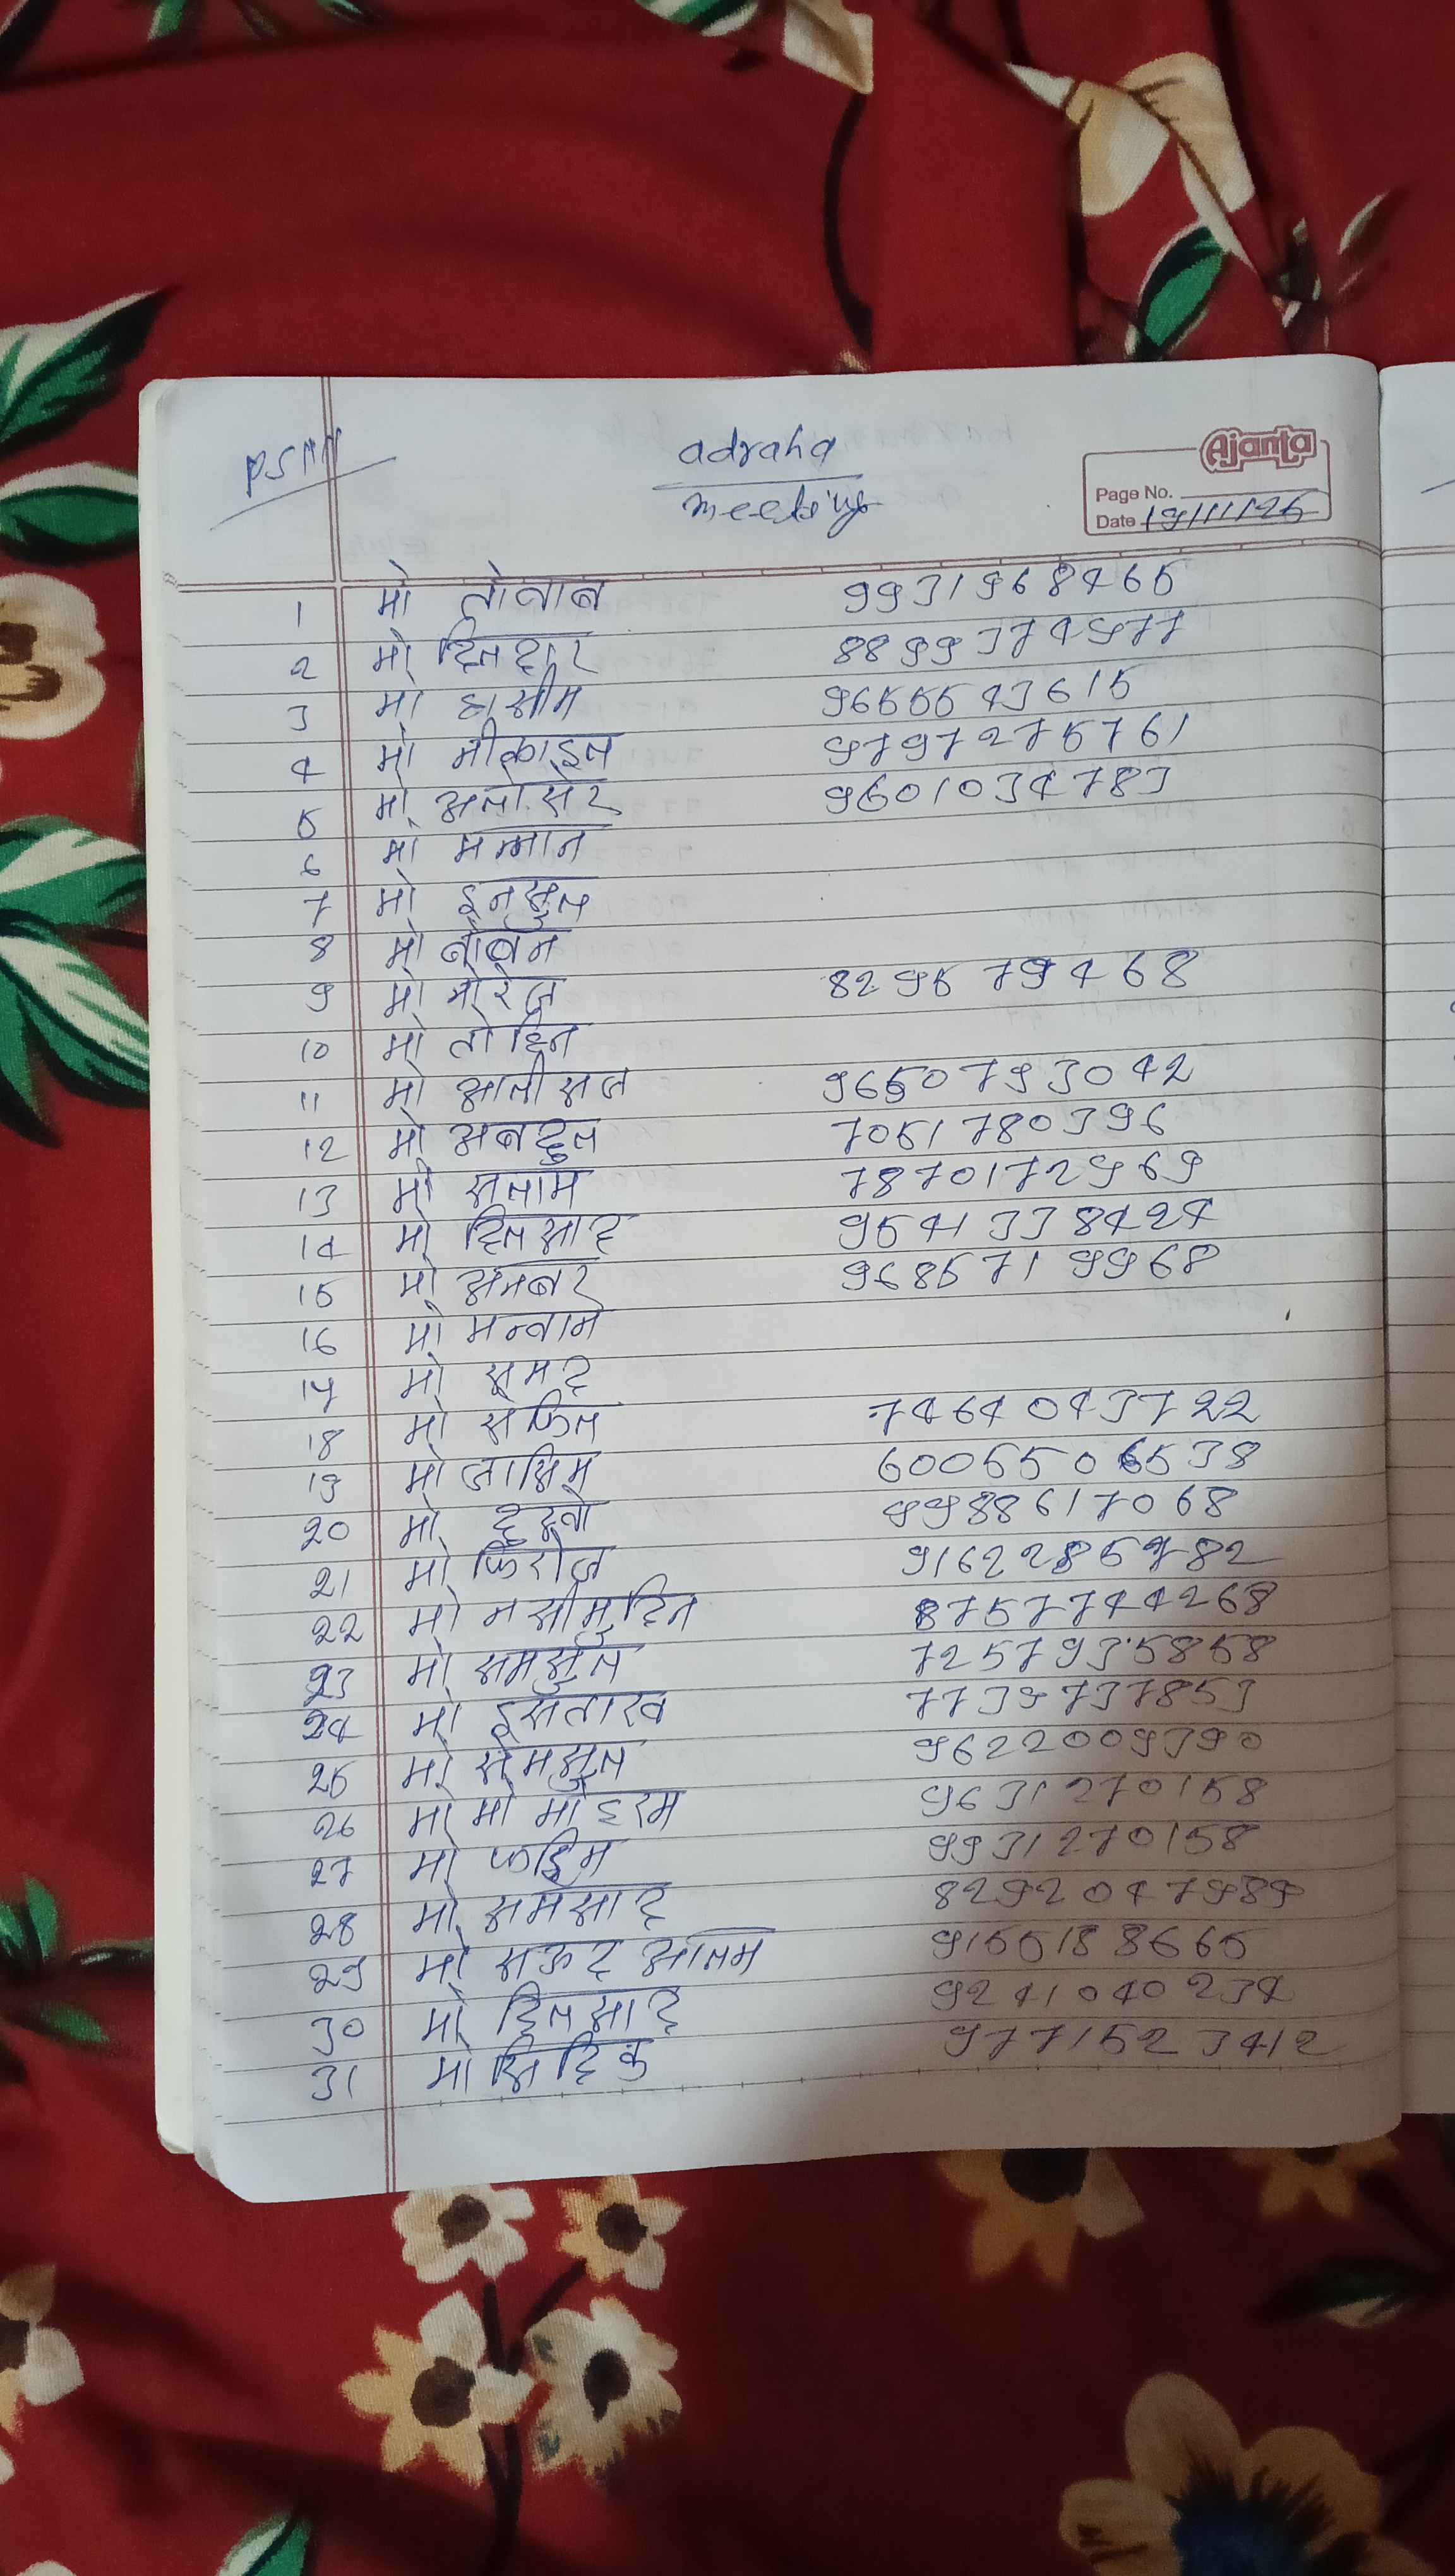 PSMM
adraha
meeting
Ajanta
Page No.
Date 19/11/25
1 मो तोवाब 9931968465
2 मो दिलदार 8899374977
3 मो हासीम 9655543615
4 मो मीकाइल 9797275761
5 मो अलीसेर 9601034783
6 मो मन्नान
7 मो इनसुल
8 मो बोबन
9 मो नोरेज 829579468
10 मो तोहिन
11 मो आलीसज 9650793042
12 मो अबदुल 7051780396
13 मो सलाम 7870172969
14 मो दिलसाद 9541338424
15 मो अनबर 9685719968
16 मो मन्वान
17 मो समद
18 मो सफिल 7464043722
19 मो जासिम 6006506538
20 मो 9988617068
21 मो फिरोज 9162285782
22 मो नसीमुदिन 8757744268
23 मो समसुल 7257935858
24 मो इसताख 7739737853
25 मो सेमसुल 9622009390
26 मो मो मोहरम 9631270158
27 मो फहिम 9931270158
28 मो समसाद 8292047989
29 मो सऊद आलम 9155188665
30 मो दिलसाद 9241040234
31 मो सिदिक 9771523412